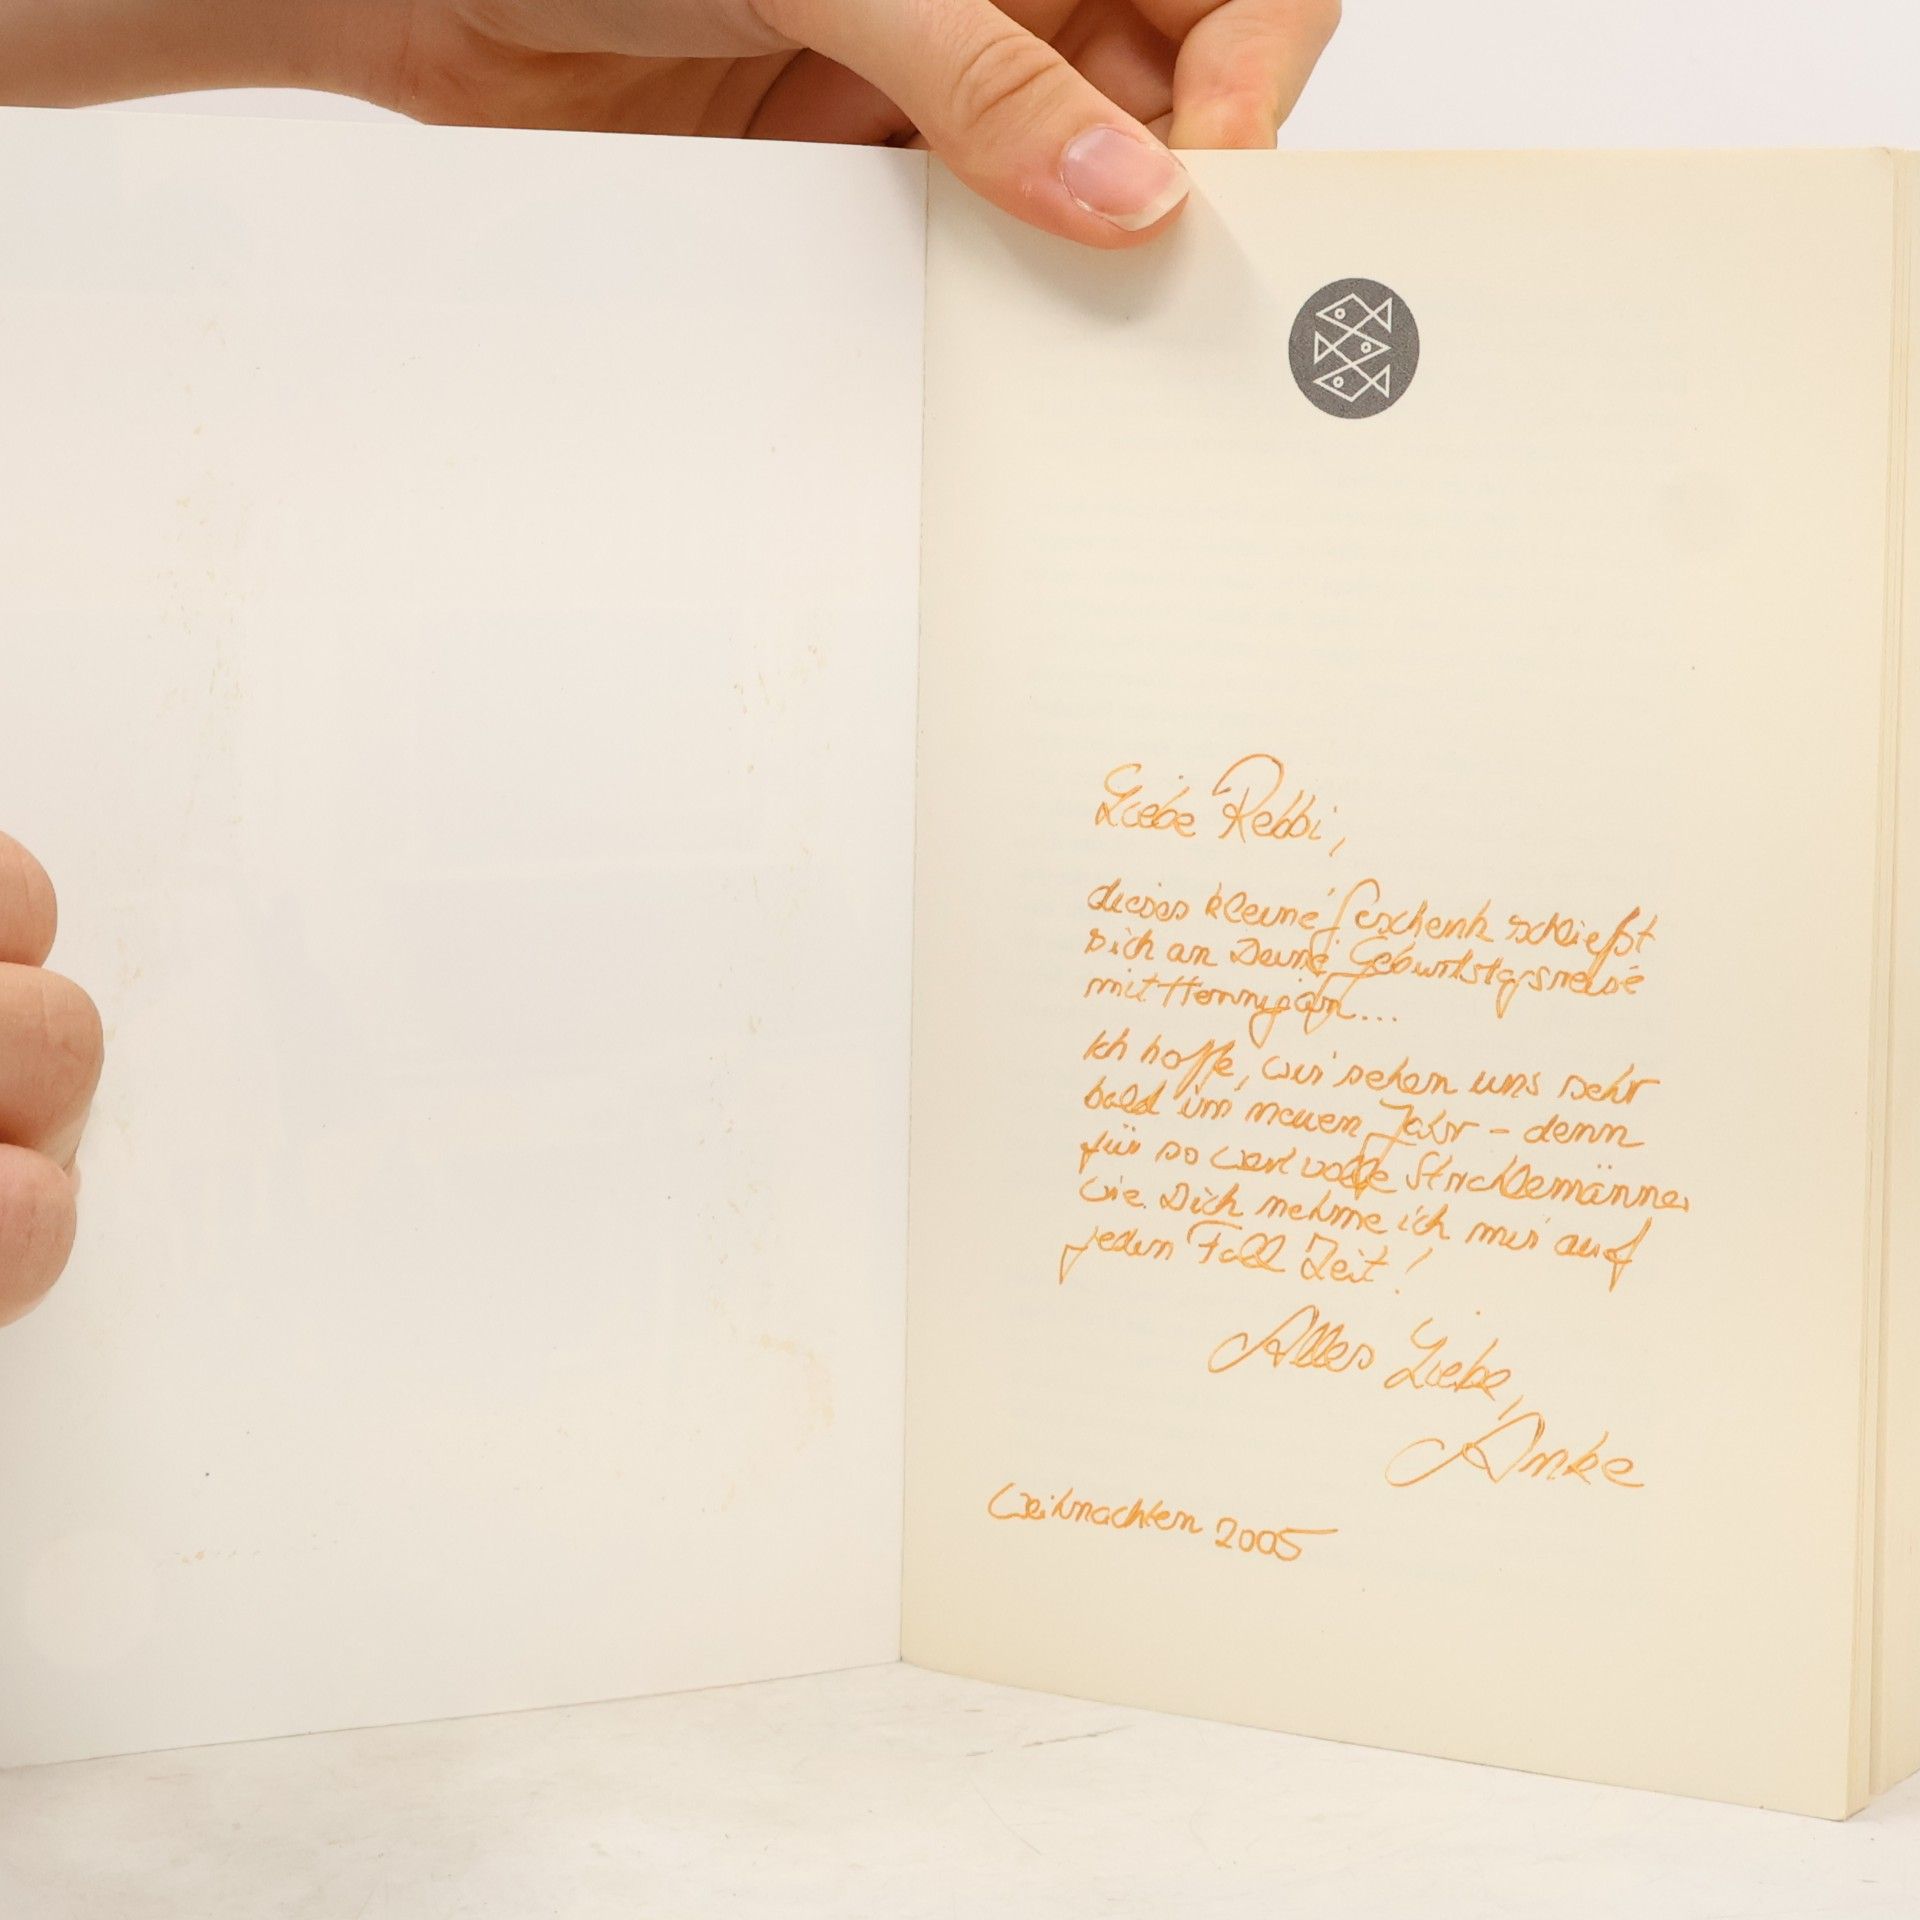 Liebe Rebbi,
dieses kleine Geschenk schließt
sich an Deine Geburtstagsreise
mit
Ich hoffe, wir sehen uns sehr
bald im neuen Jahr – denn
für so wertvolle Strahlemänner
wie Dich nehme ich mir auf
jeden Fall Zeit!
Alles Liebe,
Anke
Weihnachten 2005